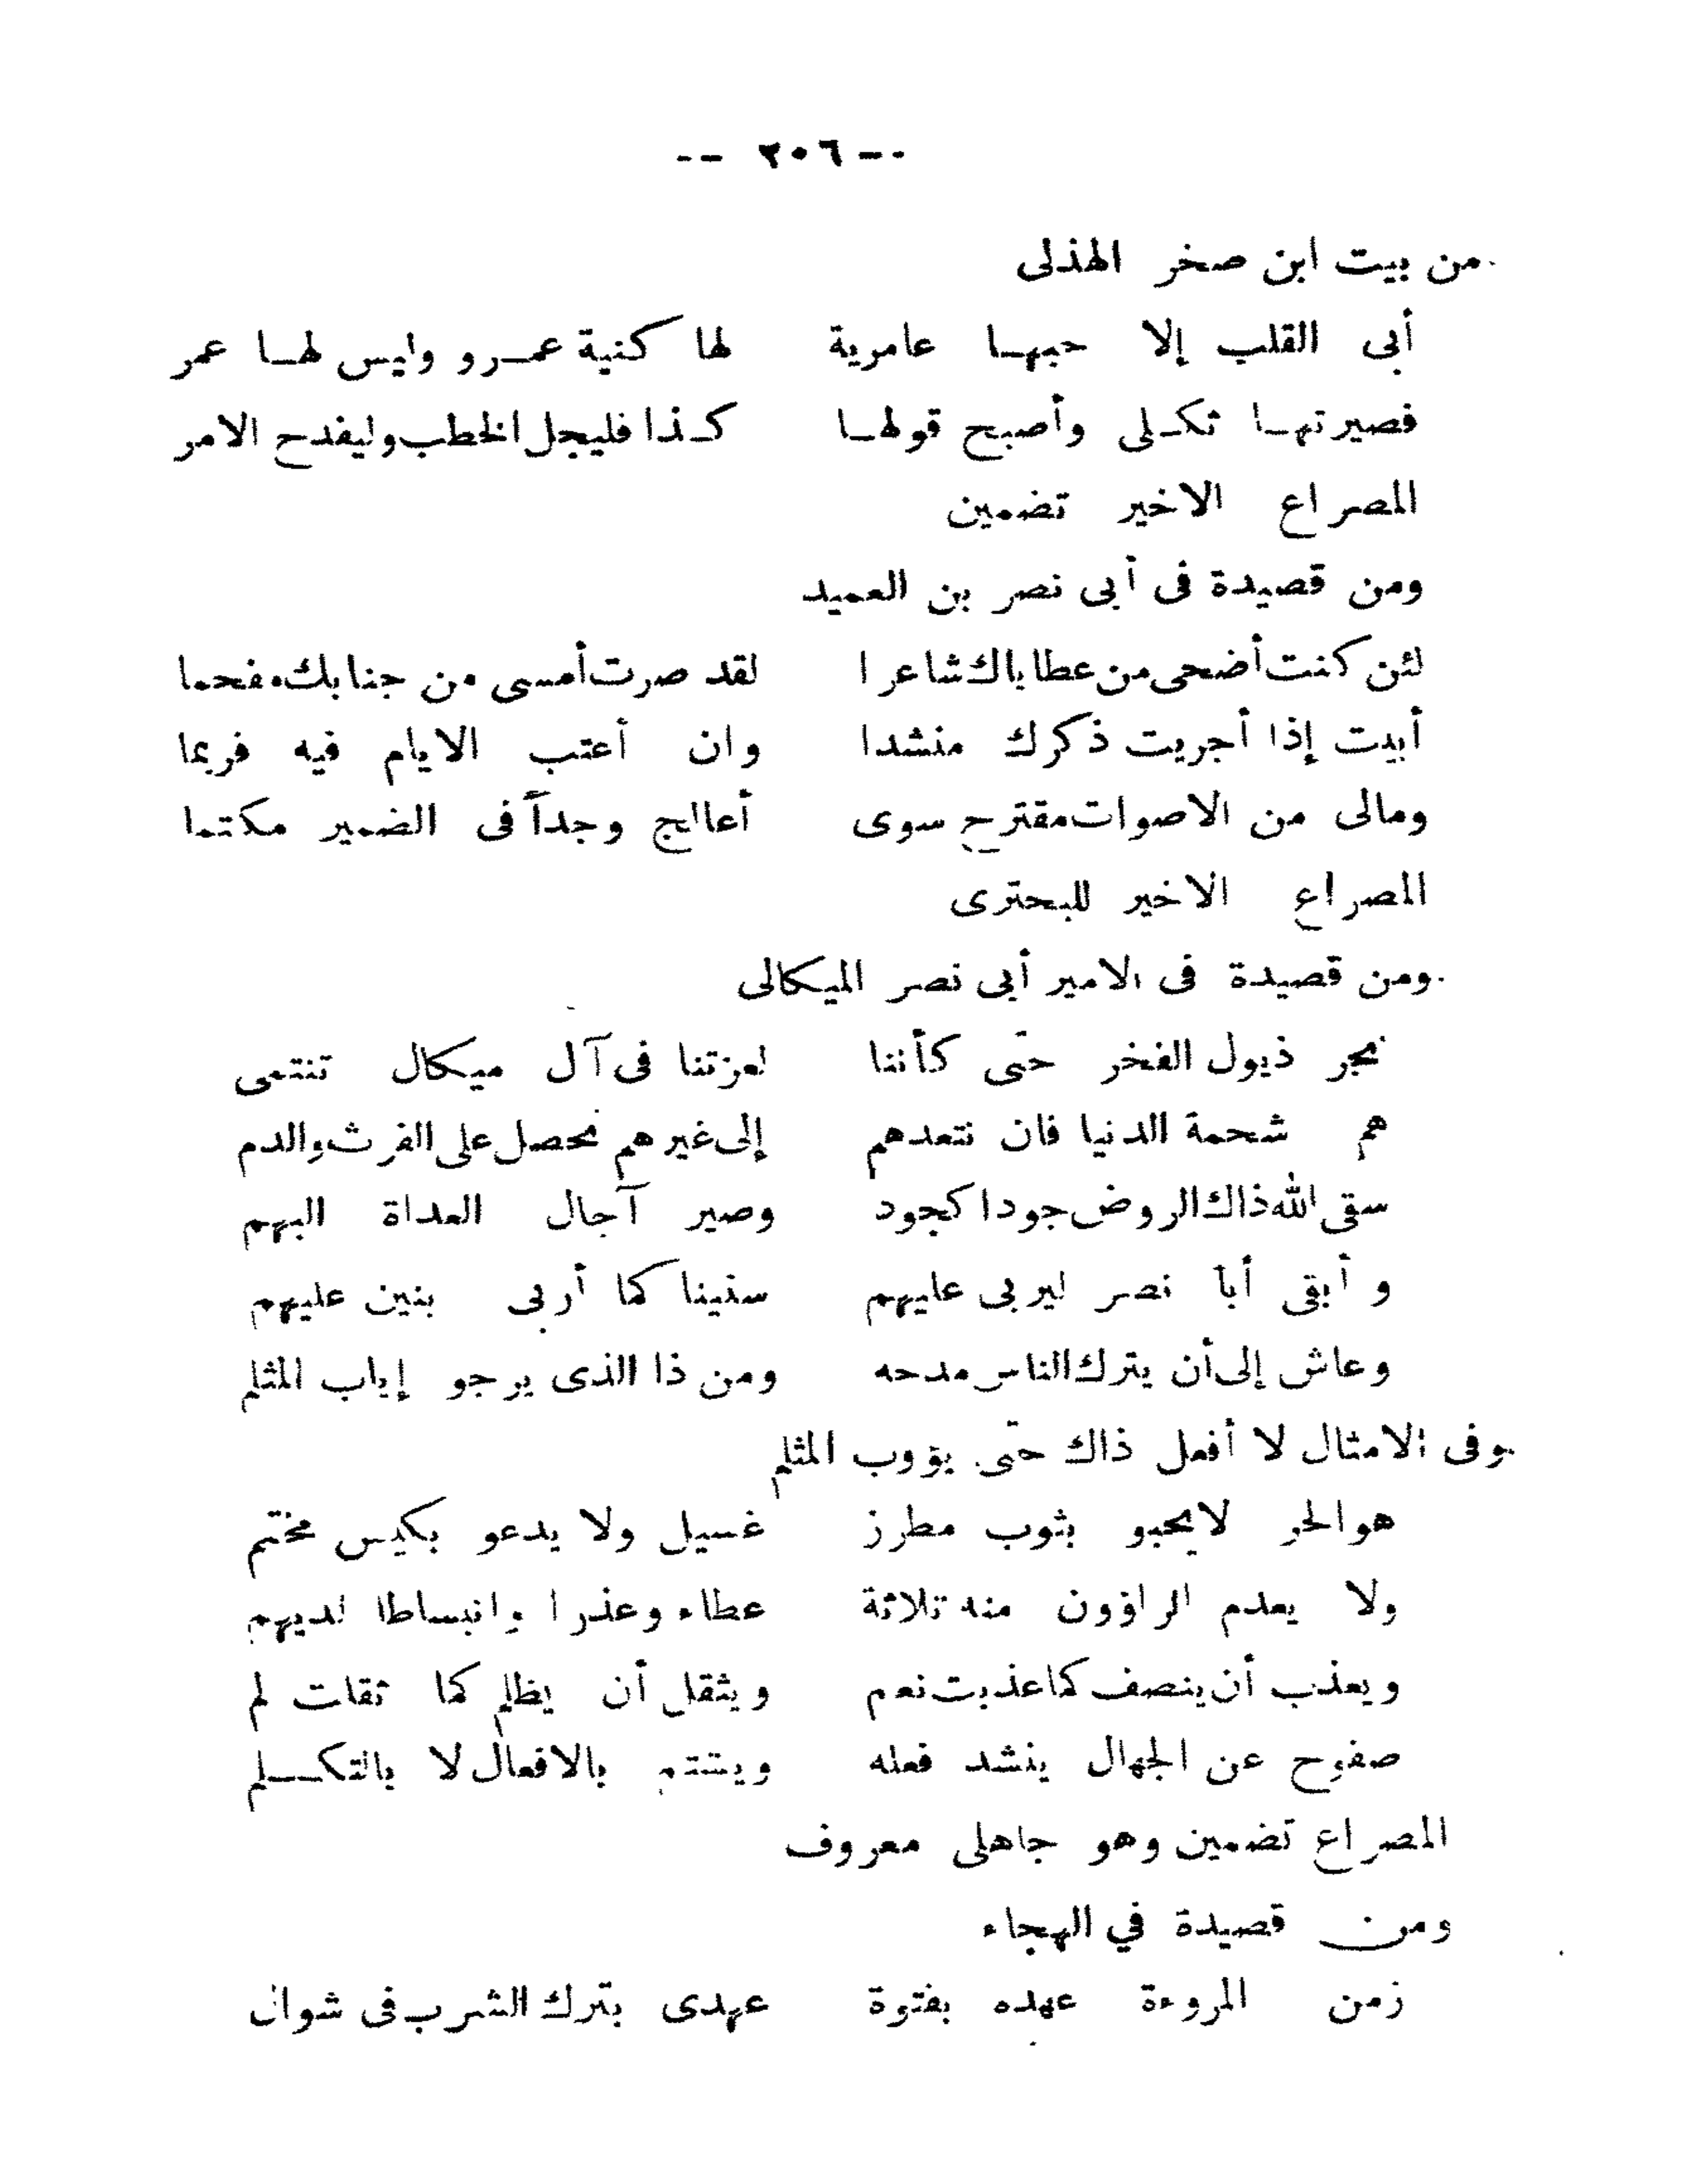 -- ٢٠٦ --
من بيت ابن صخر الهذلى
أبى القلب إلا حبهـا عامرية لها كنية عمـرو وليس لهـا عمر
فصيرتهـا ثكـلى وأصبح قولهـا كـذا فليجل الخطب وليفدح الامر
المصراع الاخير تضمين
ومن قصيدة فى أبى نصر بن العميد
لئن كنت أضحى من عطاياك شاعرا لقد صرت أمسى من جنابك مفحما
أبيت إذا أجريت ذكرك منشدا وان أعتب الايام فيه فربما
ومالى من الاصوات مقترح سوى أعالج وجداً فى الضمير مكتما
المصراع الاخير للبحترى
ومن قصيدة فى الامير أبى نصر الميكالى
نجر ذيول الفخر حتى كأننا لعزتنا فى آل ميكال تنتمى
هم شحمة الدنيا فان نتعدهم إلى غيرهم نحصل على الفرث والدم
سقى الله ذاك الروض جودا كجود وصير آجال العداة اليهم
وأبقى أبا نصر ليربى عليهم سنينا كما أربى بنين عليهم
وعاش إلى أن يترك الناس مدحه ومن ذا الذى يرجو إياب المثلم
وفى الامثال لا أفعل ذاك حتى يؤوب المثلم
هو الحر لا يحبو بثوب مطرز غسيل ولا يدعو بكيس مختم
ولا يعدم الراؤون منه ثلاثة عطاء وعذرا وانبساطا لديهم
ويعذب أن ينصف كما عذبت نعم ويثقل أن يظلم كما ثقلت لم
صفوح عن الجهال ينشد فعله ويشتم بالافعال لا بالتكـلم
المصراع تضمين وهو جاهلى معروف
ومن قصيدة في الهجاء
زمن المروءة عهده بفتوة عهدى بترك الشرب فى شوال